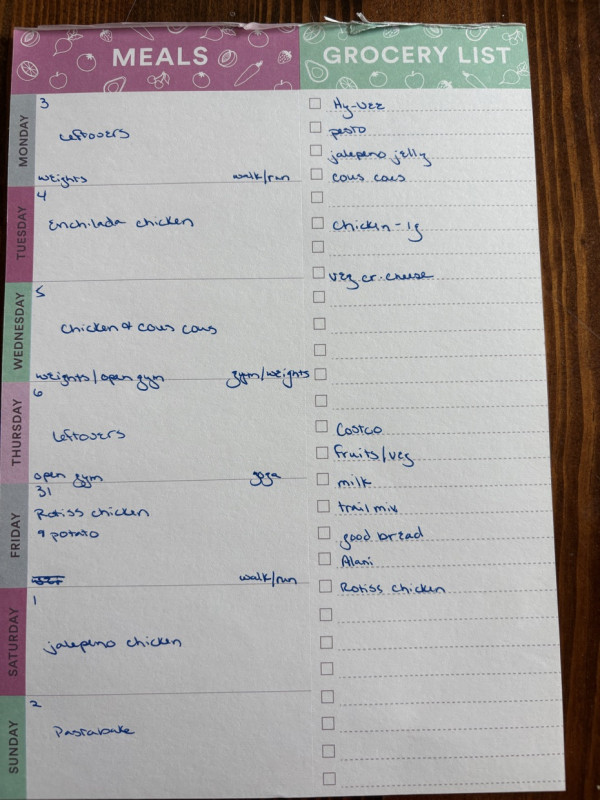 MEALS
MONDAY
3
Leftovers
weights walk/run
TUESDAY
4
Enchilada chicken
WEDNESDAY
5
Chicken & cous cous
weights/open gym gym/weights
THURSDAY
6
Leftovers
open gym yoga
FRIDAY
31
Rotiss chicken
& potato
walk/run
SATURDAY
1
jalepeno chicken
SUNDAY
2
Pastabake
GROCERY LIST
Hy-vee
pesto
jalepeno jelly
cous cous
Chicken - lg
veg cr. cheese
Costco
Fruits/veg
milk
trail mix
good bread
Alani
Rotiss chicken